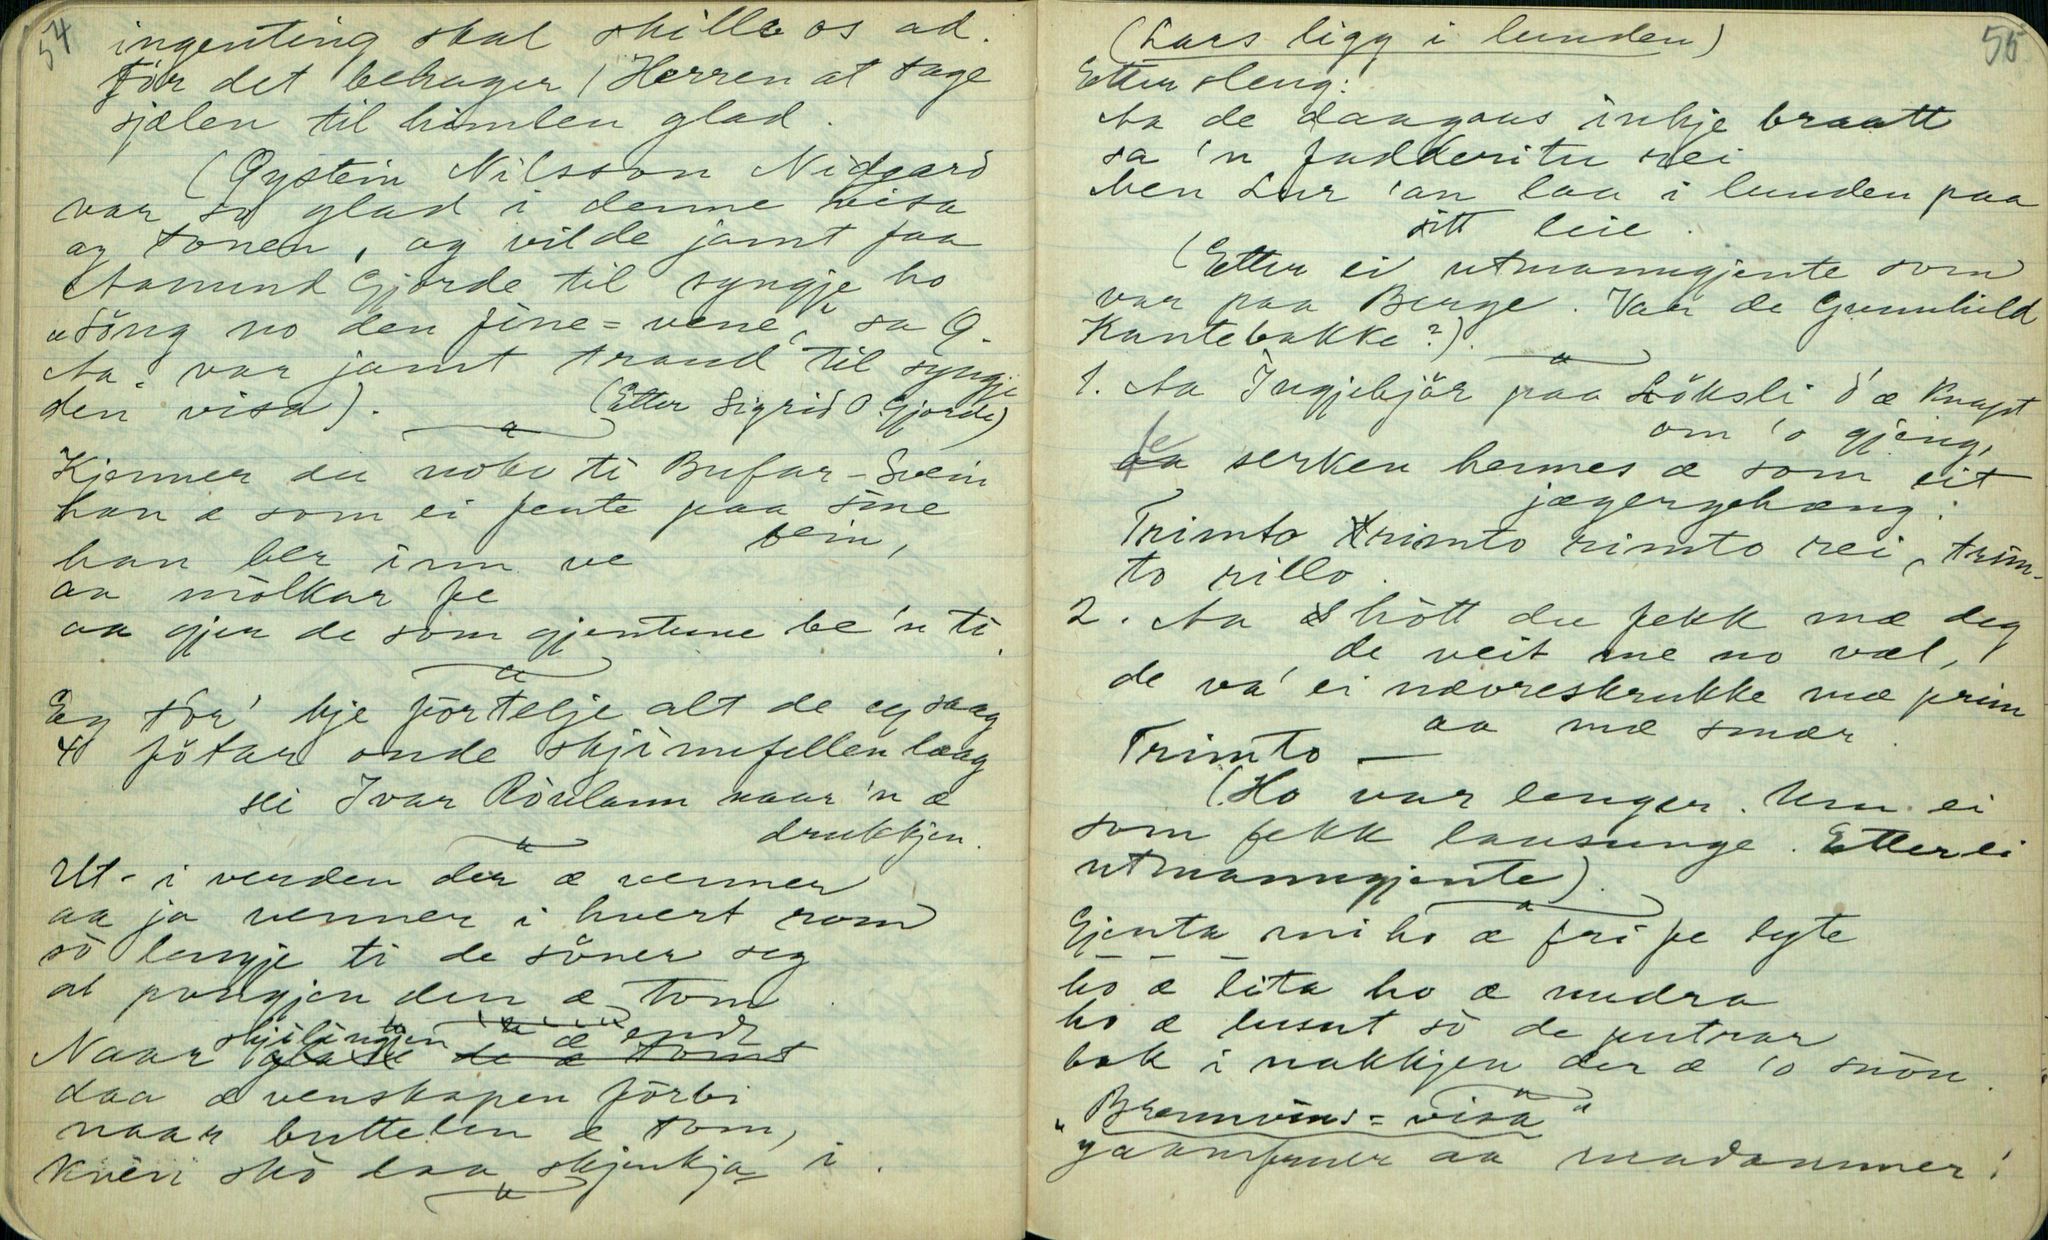 54
ingenting skal skille os ad.
Før det behager Herren at tage
sjælen til himlen glad.
(Øystein Nilsson Nidgard
var so glad i denne visa
og tonen, og vilde jamt faa
Aamund Gjorde til syngje ho
"Söng no den fine-vene", sa Ø.
Aa. var jamt traud til syngje
den visa). (Etter Sigrid O. Gjorde)
Kjenner du noko ti Bufar-Svein
han æ som ei jente paa sine
bein,
han ber inn ve
aa mölkar fe
aa gjer de som gjentune be 'n ti.
Eg tör' kje förtelje alt de eg saag
4 fötar onde skjinnfellen laag
sei Ivar Rövlann naar 'n æ
drukkjen.
Ut i verden der æ venner
aa ja venner i hvert rom
sö lengje ti de söner seg
at pongjen den æ tom.
Naar skjilingjen æ endt
daa æ venskapen förbi
naar buttelen æ tom,
kven skö daa skjenkja i.
55
(Lars ligg i lunden)
Etter sleng:
Aa de daagaas inkje braatt
sa 'n fadderitu rei
men Lur 'an laa i lunden paa
sitt leie.
(Etter ei utmanngjente som
var paa Berge. Var de Gunnhild
Kantebakke?).
1. Aa Ingjebjör paa Löksli d'æ knapt
om 'o gjeng,
fe serken hennes æ som eit
jægergehæng.
Trimto trimto rimto rei, trim-
to rillo.
2. Aa hött du fekk mæ deg
de veit me no væl,
de va' ei nævreskrukke mæ prim
aa mæ smær.
Trimto —
(Ho var lenger. Um ei
som fekk lausunge. Etter ei
utmanngjente).
Gjenta mi ho æ fri fe lyte
ho æ lita ho æ nudra
ho æ lusut sö de putrar
bak i nakkjen der æ 'o snön.
"Brennvins-visa"
Jaamfruer aa madammer!